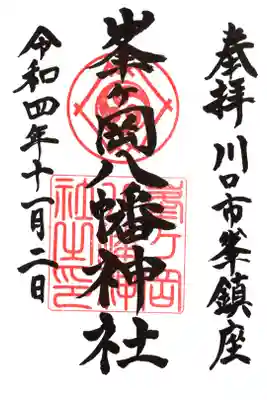 奉拝 川口市峯鎮座
峯ヶ岡八幡神社
令和四年十一月二日
峯ヶ岡
八幡神
社之印